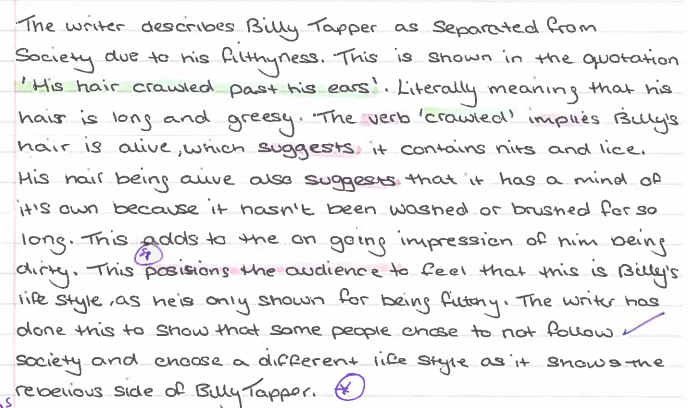 The writer describes Billy Tapper as separated from
Society due to his filthyness. This is shown in the quotation
'His hair crawled past his ears'. Literally meaning that his
hair is long and greesy. The verb 'crawled' implies Billy's
hair is alive, which suggests it contains nits and lice.
His hair being alive also suggests that it has a mind of
it's own because it hasn't been washed or brushed for so
long. This adds to the on going impression of him being
sp
dirty. This posisions the audience to feel that this is Billy's
life style, as he is only shown for being filthy. The writer has
done this to show that some people chose to not follow
society and choose a different life style as it shows the
rebelious side of Billy Tapper.